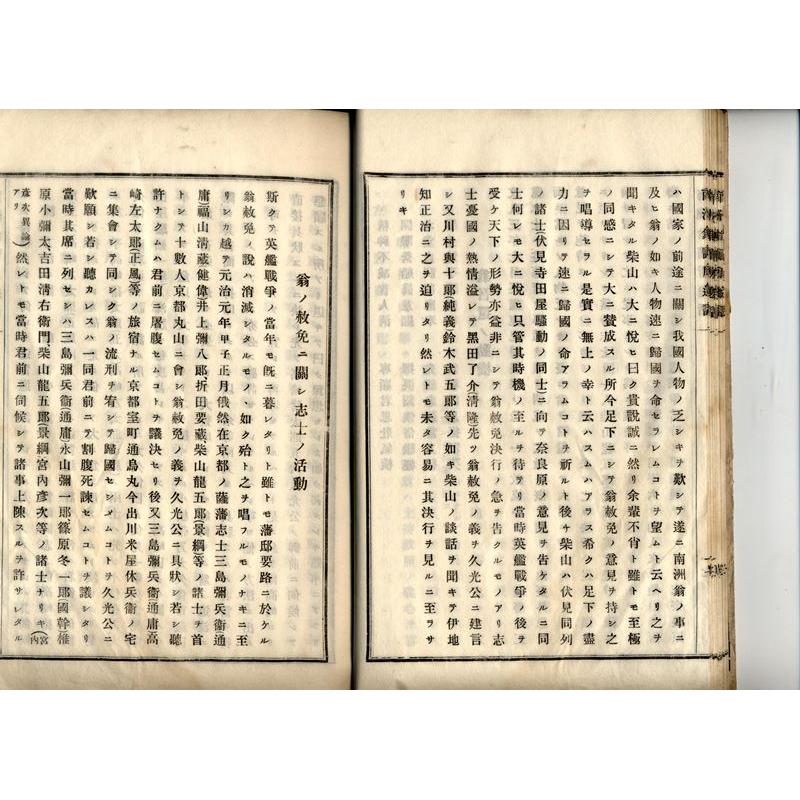 ハ國家ノ前途ニ關シ我國人物ノ乏シキヲ歎シテ遂ニ南洲翁ノ事ニ
及ヒ翁ノ如キ人物速ニ歸國ヲ命セラレムコトヲ望ムト云ヘリ之ヲ
聞キタル柴山ハ大ニ悅ヒ曰ク貴說誠ニ然リ余輩不肖ト雖トモ至極
ノ同感ニシテ大ニ賛成スル所今足下ニシテ翁赦免ノ意見ヲ持シ之
ヲ唱導セラル是實ニ無上ノ幸ト云ハスムハアラス希クハ足下ノ盡
力ニ因リテ速ニ歸國ノ命アラムコトヲ祈ルト後チ柴山ハ伏見同列
ノ諸士(伏見寺田屋騷動ノ同士ニ向テ奈良原ノ意見ヲ告ケタルニ同
士何レモ大ニ悅ヒ只管其時機ノ至ルヲ待テリ當時英艦戰爭ノ後ヲ
受ケ天下ノ形勢亦益非ニシテ翁赦免決行ノ急ヲ告クルモノアリ志
士憂國ノ熱情溢レテ黑田了介清隆先ツ翁赦免ノ義ヲ久光公ニ建言
シ又川村與十郎純義鈴木武五郎等ノ如キ柴山ノ談話ヲ聞キテ伊地
知正治ニ之ヲ迫リタリ然レトモ未タ容易ニ其決行ヲ見ルニ至ラサ
リキ
翁ノ赦免ニ關シ志士ノ活動
斯クテ英艦戰爭ノ當年モ旣ニ暮レタリト雖トモ藩邸要路ニ於ケル
翁赦免ノ說ハ消滅シタルモノヽ如ク殆ト之ヲ唱フルモノナキニ至
リシカ越テ元治元年甲子正月俄然在京都ノ薩藩志士三島彌兵衞通
庸福山清藏健偉井上彌八郎折田要藏柴山龍五郎(景綱)等ノ諸士ヲ首
トシテ十數人京都丸山ニ會シ翁赦免ノ義ヲ久光公ニ具狀シ若シ聽
許ナクムハ君前ニ屠腹セムコトヲ議決セリ後又三島彌兵衞通庸高
崎左太郎(正風)等ノ旅宿ナル京都室町通烏丸今出川米屋休兵衞ノ宅
ニ集會シテ同シク翁ノ流刑ヲ宥シテ歸國セシメムコトヲ久光公ニ
歎願シ若シ聽カレスハ一同君前ニテ割腹死諫セムコトヲ議シタリ
當時其席ニ列セシハ三島彌兵衞通庸永山彌一郎篠原冬一郎國幹椎
原小彌太吉田清右衞門柴山龍五郎(景綱宮內彥次等ノ諸士ナリキ(宮內
彥次異論アリ)然レトモ當時君前ニ伺候シテ諸事上陳スルヲ許サレタル